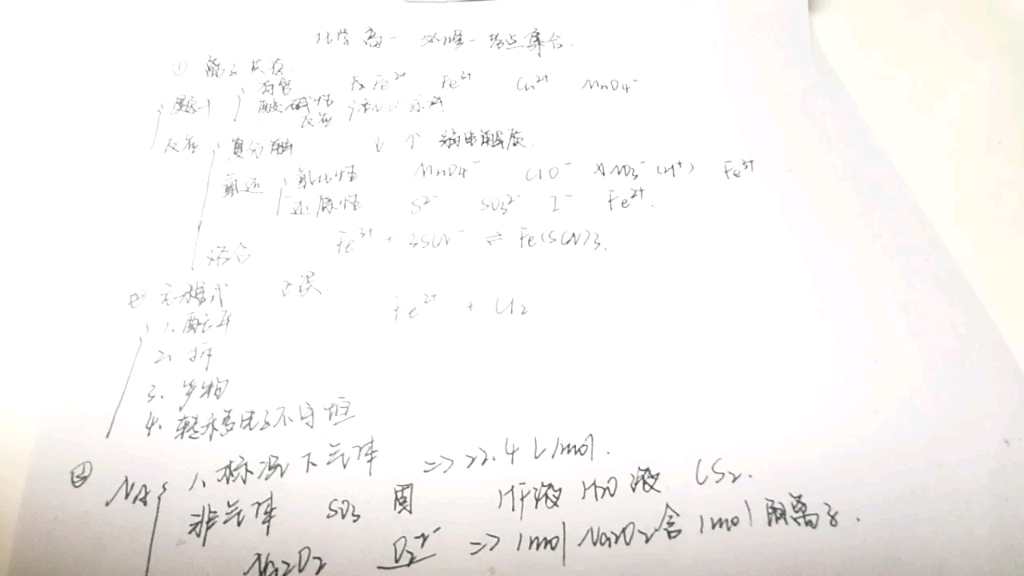 化学高一 必修一考点集合.
① 离子共存
题干 有色 Fe²⁺ Fe³⁺ Cu²⁺ MnO₄⁻
酸碱性
反应 复分解 弱电解质.
氧还 氧化性 MnO₄⁻ ClO⁻ NO₃⁻(H⁺) Fe³⁺
还原性 S²⁻ SO₃²⁻ I⁻ Fe²⁺.
络合 Fe³⁺ + 3SCN⁻ ⇌ Fe(SCN)₃.
方程式 正误.
1. 配平 Fe²⁺ + Cl₂
2. 拆
3. 少物
4. 转移电子不守恒
NA 1. 标况下气体 => 22.4 L/mol.
非气体 SO₃ 固 HF液 H₂O液 CS₂.
Na₂O₂ O₂²⁻ => 1mol Na₂O₂含1mol阴离子.